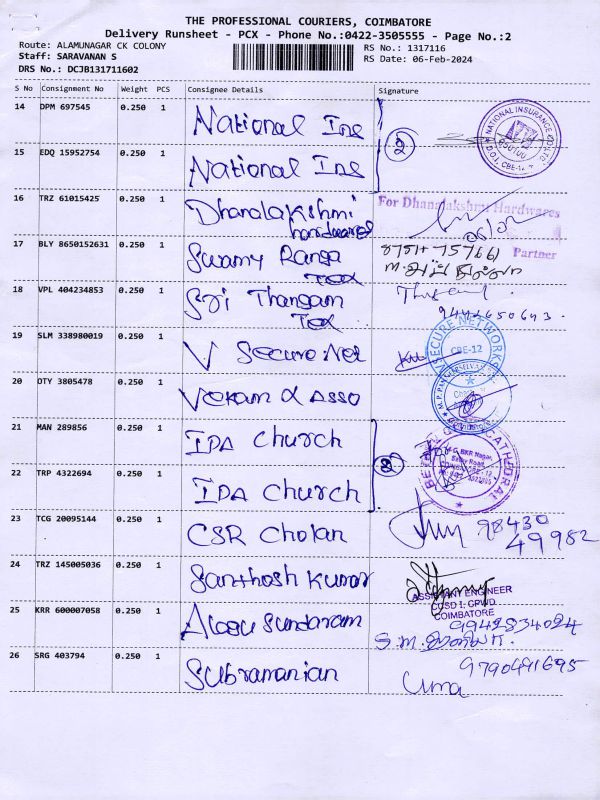 THE PROFESSIONAL COURIERS, COIMBATORE
Delivery Runsheet - PCX - Phone No.:0422-3505555 - Page No.:2
Route: ALAMUNAGAR CK COLONY
RS No.: 1317116
Staff: SARAVANAN S
RS Date: 06-Feb-2024
DRS No.: DCJB131711602
S No Consignment No Weight PCS Consignee Details Signature
14 DPM 697545 0.250 1 National Ins
15 EDQ 15952754 0.250 1 National Ins
2
NATIONAL INSURANCE
16 TRZ 61015425 0.250 1 Dhanalakshmi
hardwares
For Dhanalakshmi Hardwares
Partner
17 BLY 8650152631 0.250 1 Swamy Ranga
Tex
18 VPL 404234853 0.250 1 Sri Thangam
Tex
19 SLM 338980019 0.250 1 V Secure Net
V SECURE NETWORKS
CBE-12
20 OTY 3805478 0.250 1
21 MAN 289856 0.250 1 IPA Church
22 TRP 4322694 0.250 1 IPA Church
CATHEDRAL
23 TCG 20095144 0.250 1 CSR Cholan
98430
49982
24 TRZ 145005036 0.250 1 Santhosh Kumar
ASSISTANT ENGINEER
CCSD I, CPWD
COIMBATORE
25 KRR 600007058 0.250 1 Alagu Sundaram
9942834024
26 SRG 403794 0.250 1 Subramanian
9790491695
Uma